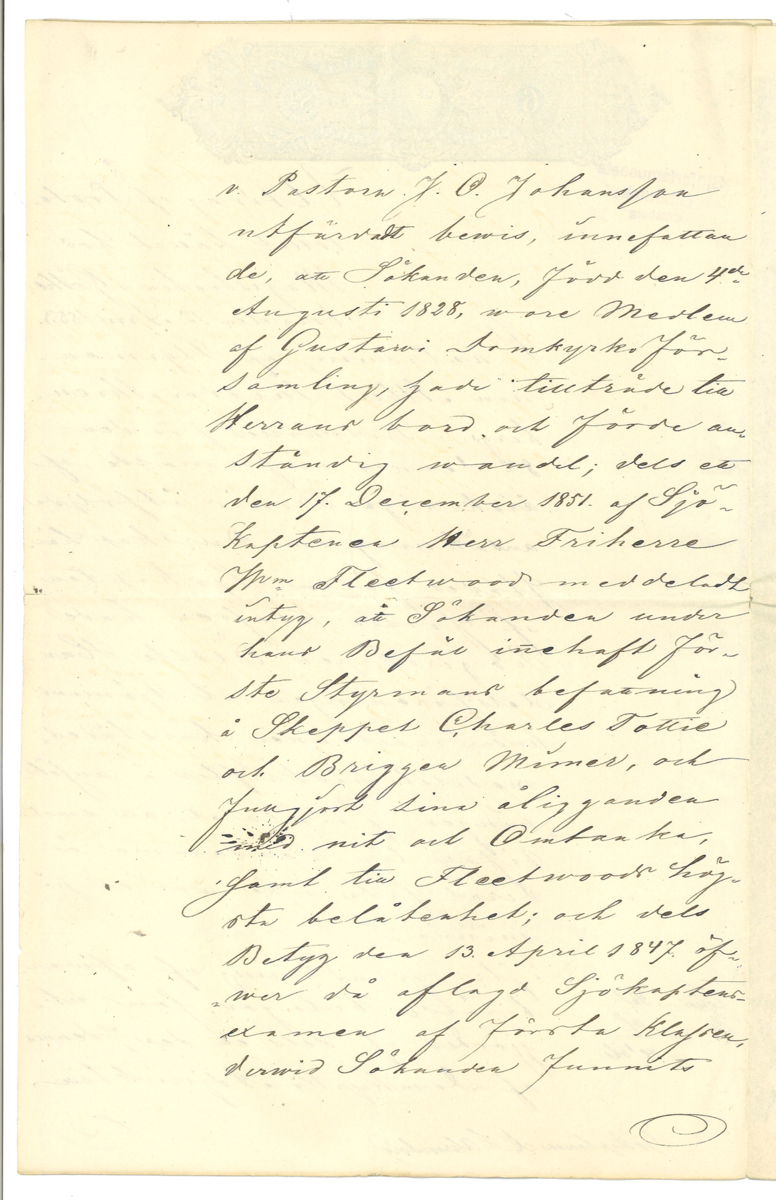 v. Pastorn J. O. Johansson
utfärdadt bewis, innefattan
de, att Sökanden, född den 4de
Augusti 1828, wore Medlem
af Gustawi Domkyrko För-
samling, hade tillträde till
Herrans bord och förde an-
ständig wandel; dels ett
den 17. December 1851. af Sjö-
Kaptenen Herr Friherre
Wm Fleetwood meddeladt
intyg, att Sökanden under
hans Befäl innehaft För-
ste Styrmans befattning
å Skeppet Charles Tottie
och Briggen Mimer, och
fullgjort sina åligganden
med nit och Omtanka,
samt till Fleetwoods hög-
sta belåtenhet; och dels
Betyg den 13. April 1847. öf-
wer då aflagd Sjökaptens-
examen af första Klassen,
derwid Sökanden funnits